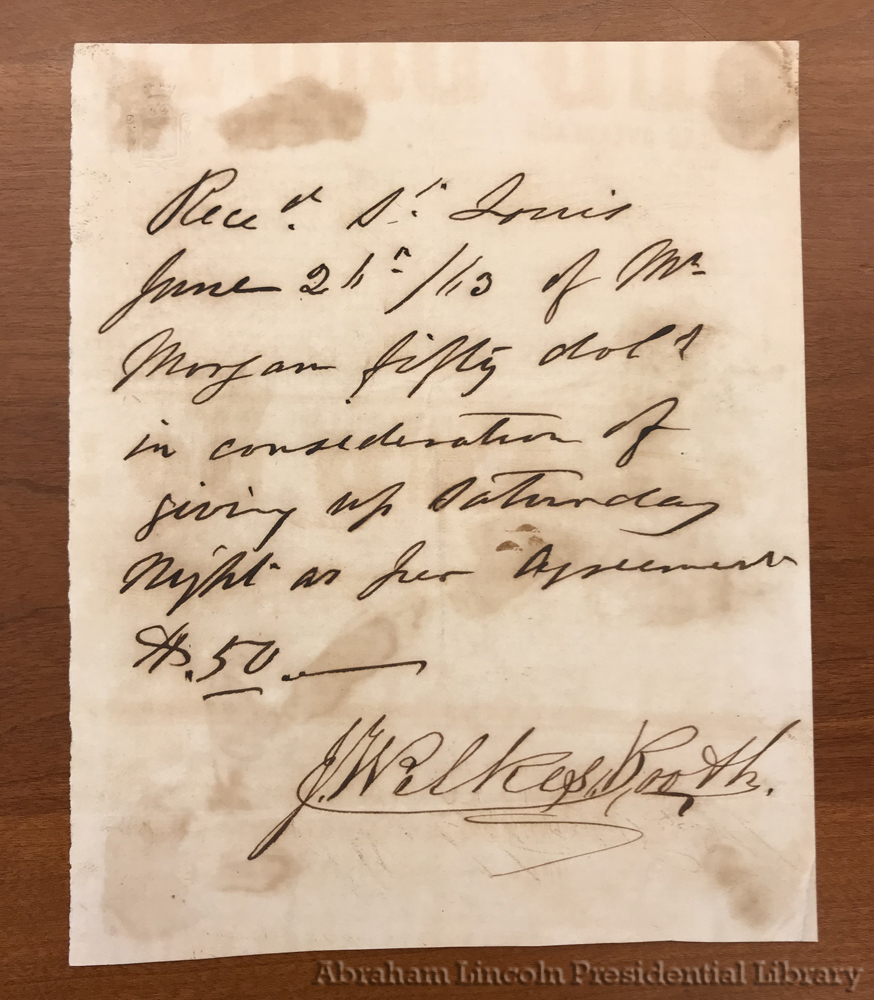 Rece.d St. Louis
June 26th/63 of Mr
Morgan fifty dols
in consideration of
giving up Saturday
Night as per Agreement
$.50.
J. Wilkes Booth.
Abraham Lincoln Presidential Library